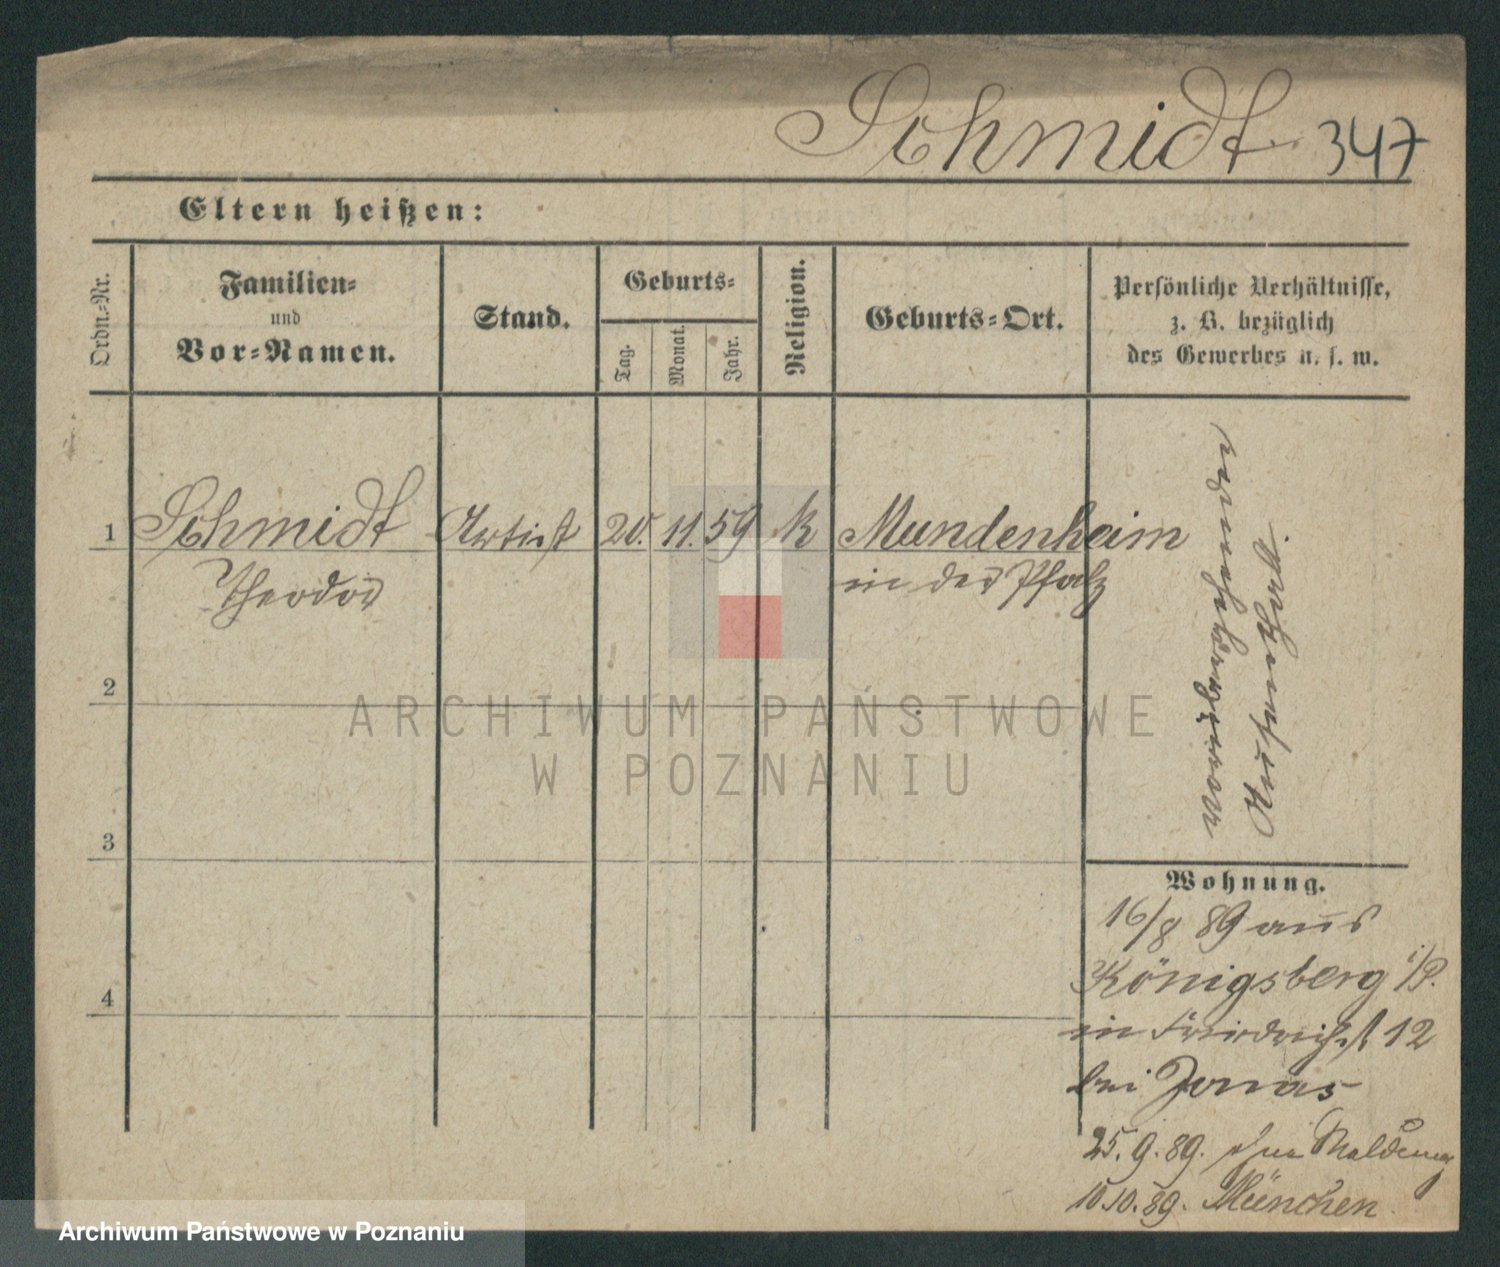 Schmidt 347
Eltern heißen:
Ordn.-Nr.
Familien-
und
Vor-Namen.
Stand.
Geburts-
Tag.
Monat.
Jahr.
Religion.
Geburts-Ort.
Persönliche Verhältnisse,
z. B. bezüglich
des Gewerbes u. s. w.
1
Schmidt
Theodor
Artist
20.
11.
59
k
Mundenheim
in der Pfalz
Aufenthalt.
2
3
4
Wohnung.
16/8 89 aus
Königsberg i/P.
in Friedrichst 12
bei Jonas
25.9.89. ohne Meldung
10.10.89. München
ARCHIWUM PAŃSTWOWE
W POZNANIU
Archiwum Państwowe w Poznaniu